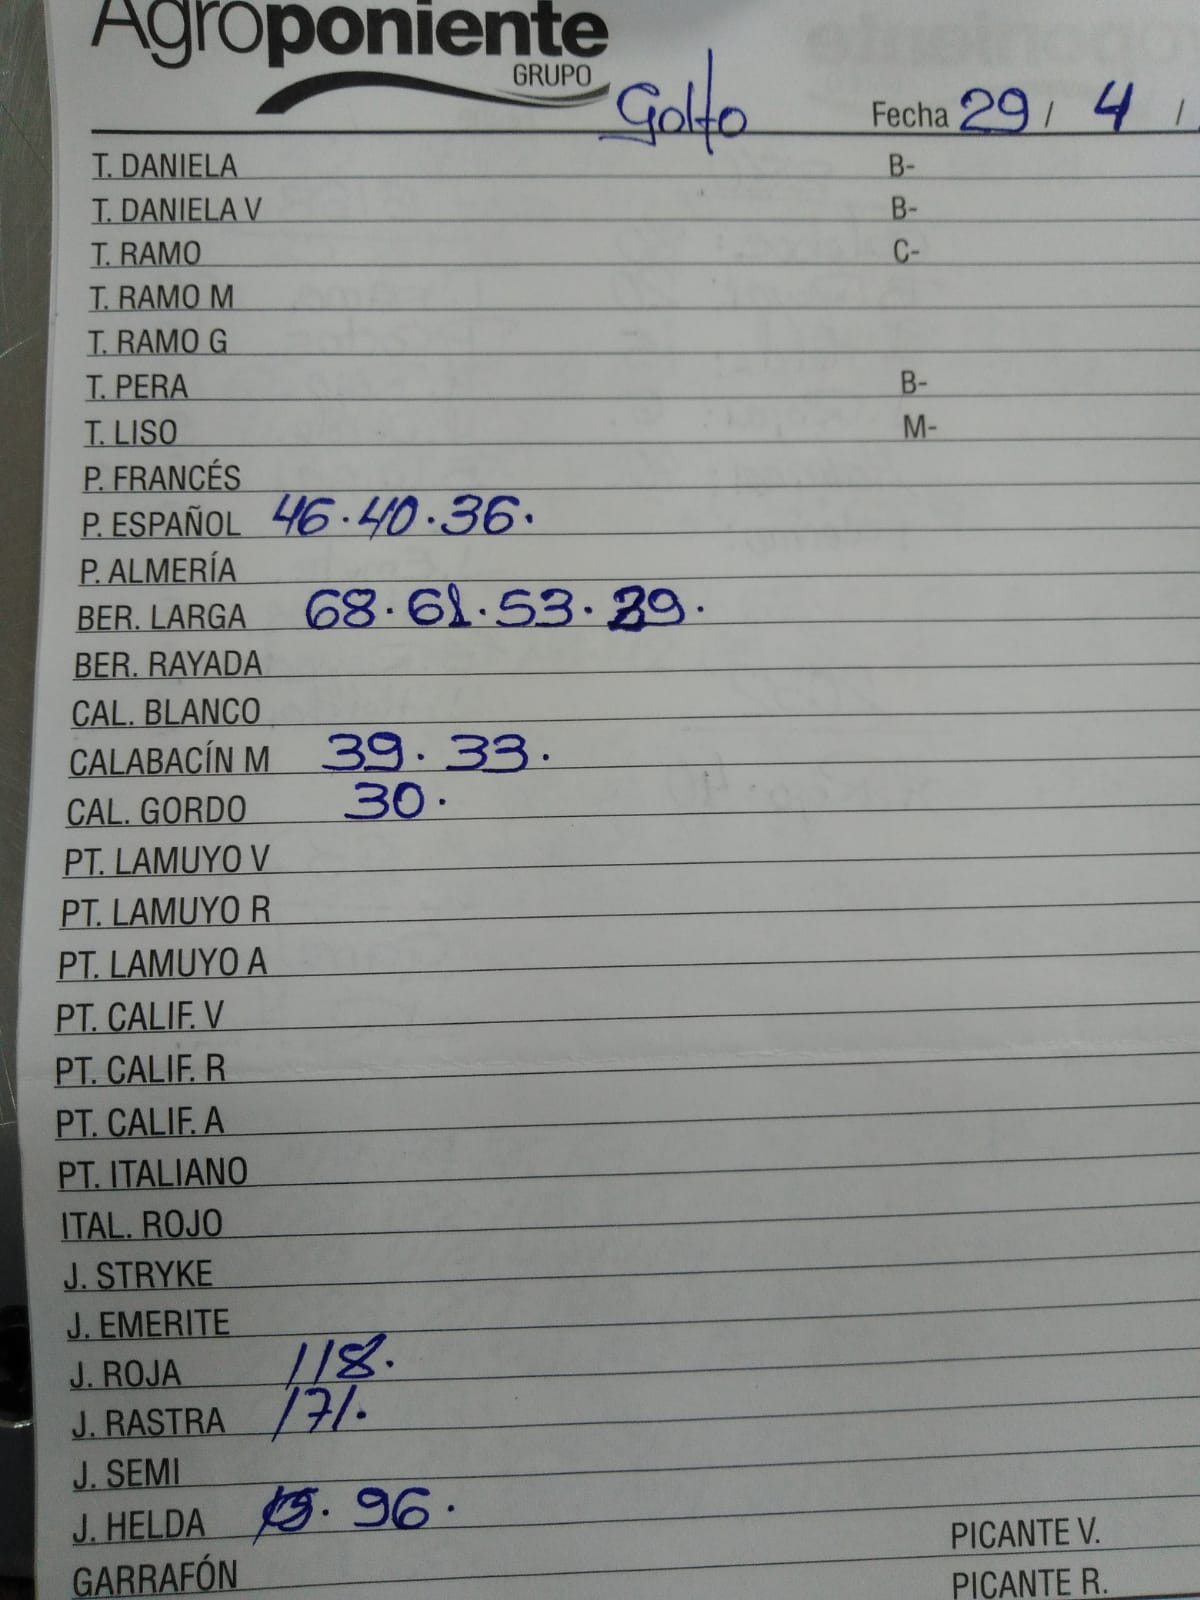 Agroponiente
GRUPO
Golfo Fecha 29 / 4 /
T. DANIELA B-
T. DANIELA V B-
T. RAMO C-
T. RAMO M
T. RAMO G
T. PERA B-
T. LISO M-
P. FRANCÉS
P. ESPAÑOL 46·40·36·
P. ALMERÍA
BER. LARGA 68·61·53·39·
BER. RAYADA
CAL. BLANCO
CALABACÍN M 39·33·
CAL. GORDO 30·
PT. LAMUYO V
PT. LAMUYO R
PT. LAMUYO A
PT. CALIF. V
PT. CALIF. R
PT. CALIF. A
PT. ITALIANO
ITAL. ROJO
J. STRYKE
J. EMERITE
J. ROJA 118·
J. RASTRA 171·
J. SEMI
J. HELDA 96·
PICANTE V.
GARRAFÓN
PICANTE R.